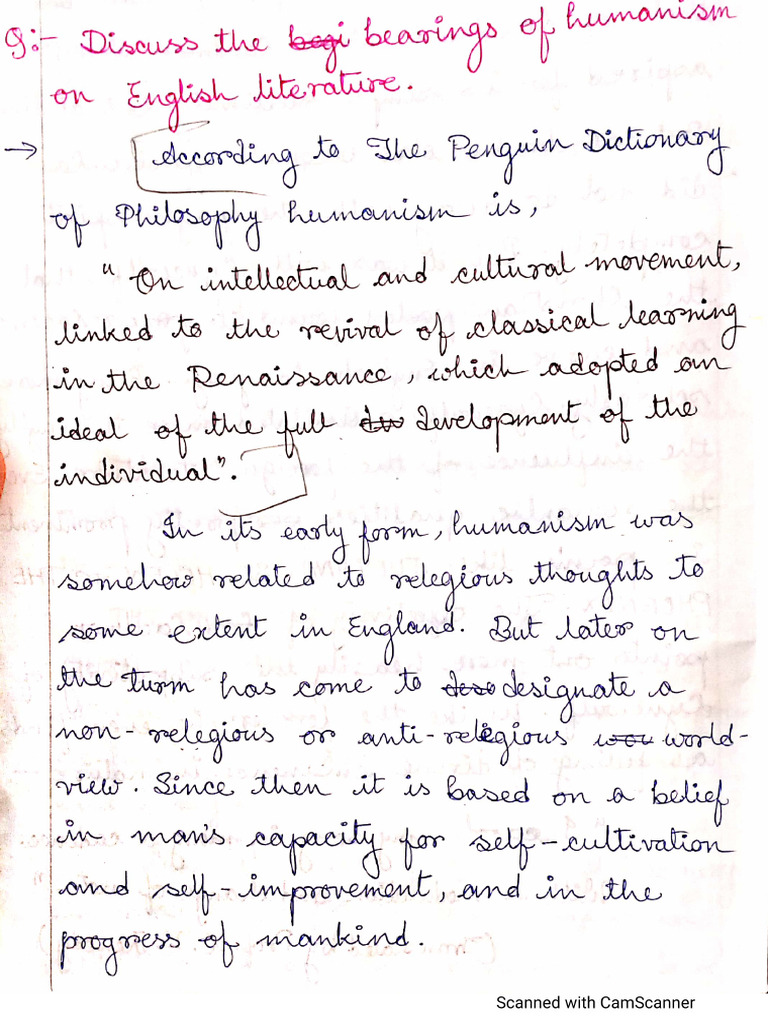 Q:- Discuss the begi bearings of humanism
on English literature.
→ According to The Penguin Dictionary
of Philosophy humanism is,
"On intellectual and cultural movement,
linked to the revival of classical learning
in the Renaissance, which adopted an
ideal of the full dw development of the
individual".
In its early form, humanism was
somehow related to relegious thoughts to
some extent in England. But later on
the turm has come to deso designate a
non-relegious or anti-relegious wou world-
view. Since then it is based on a belief
in man's capacity for self-cultivation
and self-improvement, and in the
progress of mankind.
Scanned with CamScanner